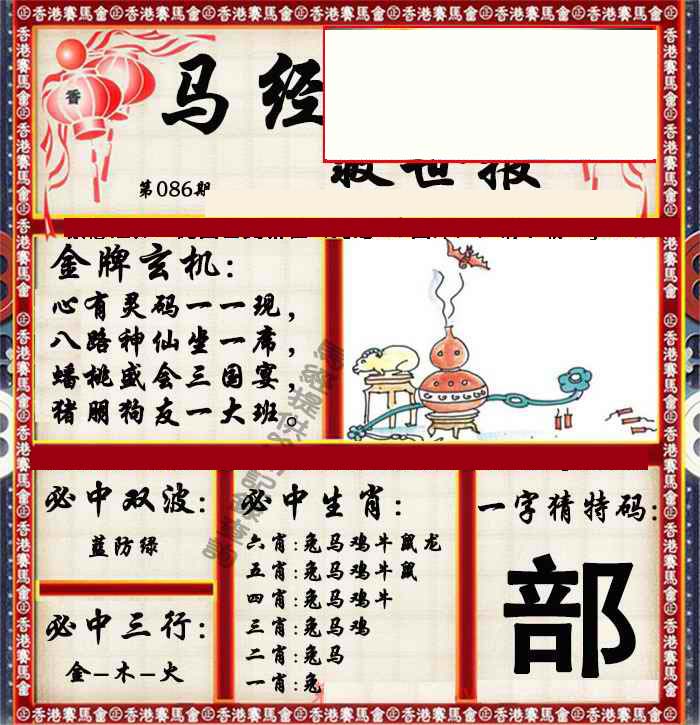 香港赛馬會
香
马经
救世报
第086期
金牌玄机:
心有灵码一一现,
八路神仙坐一席,
蟠桃盛会三国宴,
猪朋狗友一大班。
必中双波:
蓝防绿
必中三行:
金-木-火
必中生肖:
六肖:兔马鸡牛鼠龙
五肖:兔马鸡牛鼠
四肖:兔马鸡牛
三肖:兔马鸡
二肖:兔马
一肖:兔
一字猜特码:
部